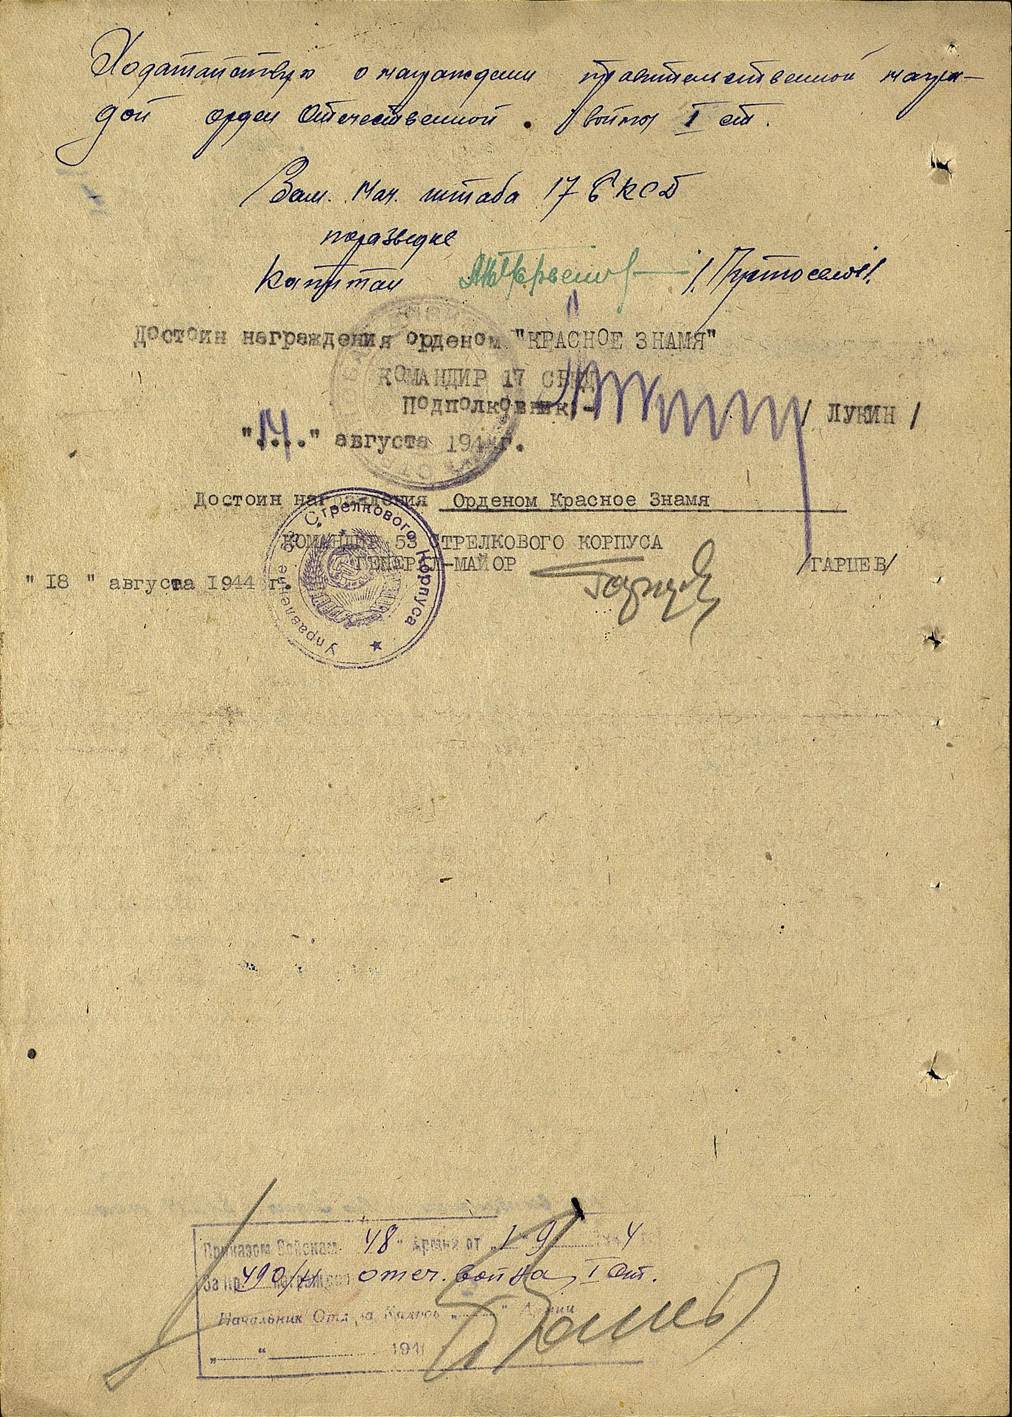 Ходатайствую о награждении правительственной награ-
дой орден Отечественной войны I ст.
Зам. нач. штаба 17
по разведке
Капитан
Достоин награждения орденом "КРАСНОЕ ЗНАМЯ"
КОМАНДИР 17
Подполковник- / ЛУКИН /
"14." августа 194 г.
Достоин награждения Орденом Красное Знамя
КОМАНДИР 53 СТРЕЛКОВОГО КОРПУСА
ГЕНЕРАЛ-МАЙОР /ГАРЦЕВ/
"18" августа 1944 г.
Управление 53 Стрелкового Корпуса
Приказом Войскам 48 " Армии от 1 9 4
За № 490/н награжден отеч. война I ст.
Начальник Отдела Кадров " " Армии
" " 194